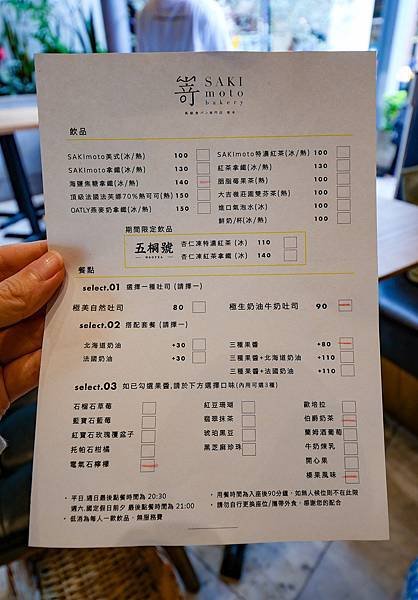 嵜 SAKI
moto
bakery
高級食パン専門店 嵜本
飲品
SAKImoto美式(冰/熱) 100
SAKImoto拿鐵(冰/熱) 130
海鹽焦糖拿鐵(冰/熱) 140
頂級法國法芙娜70%熱可可(熱) 150
OATLY燕麥奶拿鐵(冰/熱) 150
SAKImoto特濃紅茶(冰/熱) 100
紅茶拿鐵(冰/熱) 130
胭脂莓果茶(熱) 100
大吉嶺莊園雙芬茶(熱) 100
進口氣泡水(冰) 100
鮮奶/杯(冰/熱) 100
期間限定飲品
五桐號
WOOTEA
杏仁凍特濃紅茶 (冰) 110
杏仁凍紅茶拿鐵 (冰) 140
餐點
select.01 選擇一種吐司 (請擇一)
極美自然吐司 80
極生奶油牛奶吐司 90
select.02 搭配套餐 (請擇一)
北海道奶油 +30
法國奶油 +30
三種果醬 +80
三種果醬+北海道奶油 +110
三種果醬+法國奶油 +110
select.03 如已勾選果醬,請於下方選擇口味(內用可選3種)
石榴石草莓
藍寶石藍莓
紅寶石玫瑰覆盆子
托帕石柑橘
電氣石檸檬
紅豆珊瑚
翡翠抹茶
琥珀黑豆
黑芝麻珍珠
歐培拉
伯爵奶茶
蘭姆酒葡萄
牛奶煉乳
開心果
榛果風味
• 平日,週日最後點餐時間為 20:30
週六,國定假日前夕 最後點餐時間為 21:00
• 低消為每人一款飲品, 無服務費
• 用餐時間為入座後90分鐘, 如無人候位則不在此限
• 請勿自行更換座位/攜帶外食, 感謝您的配合